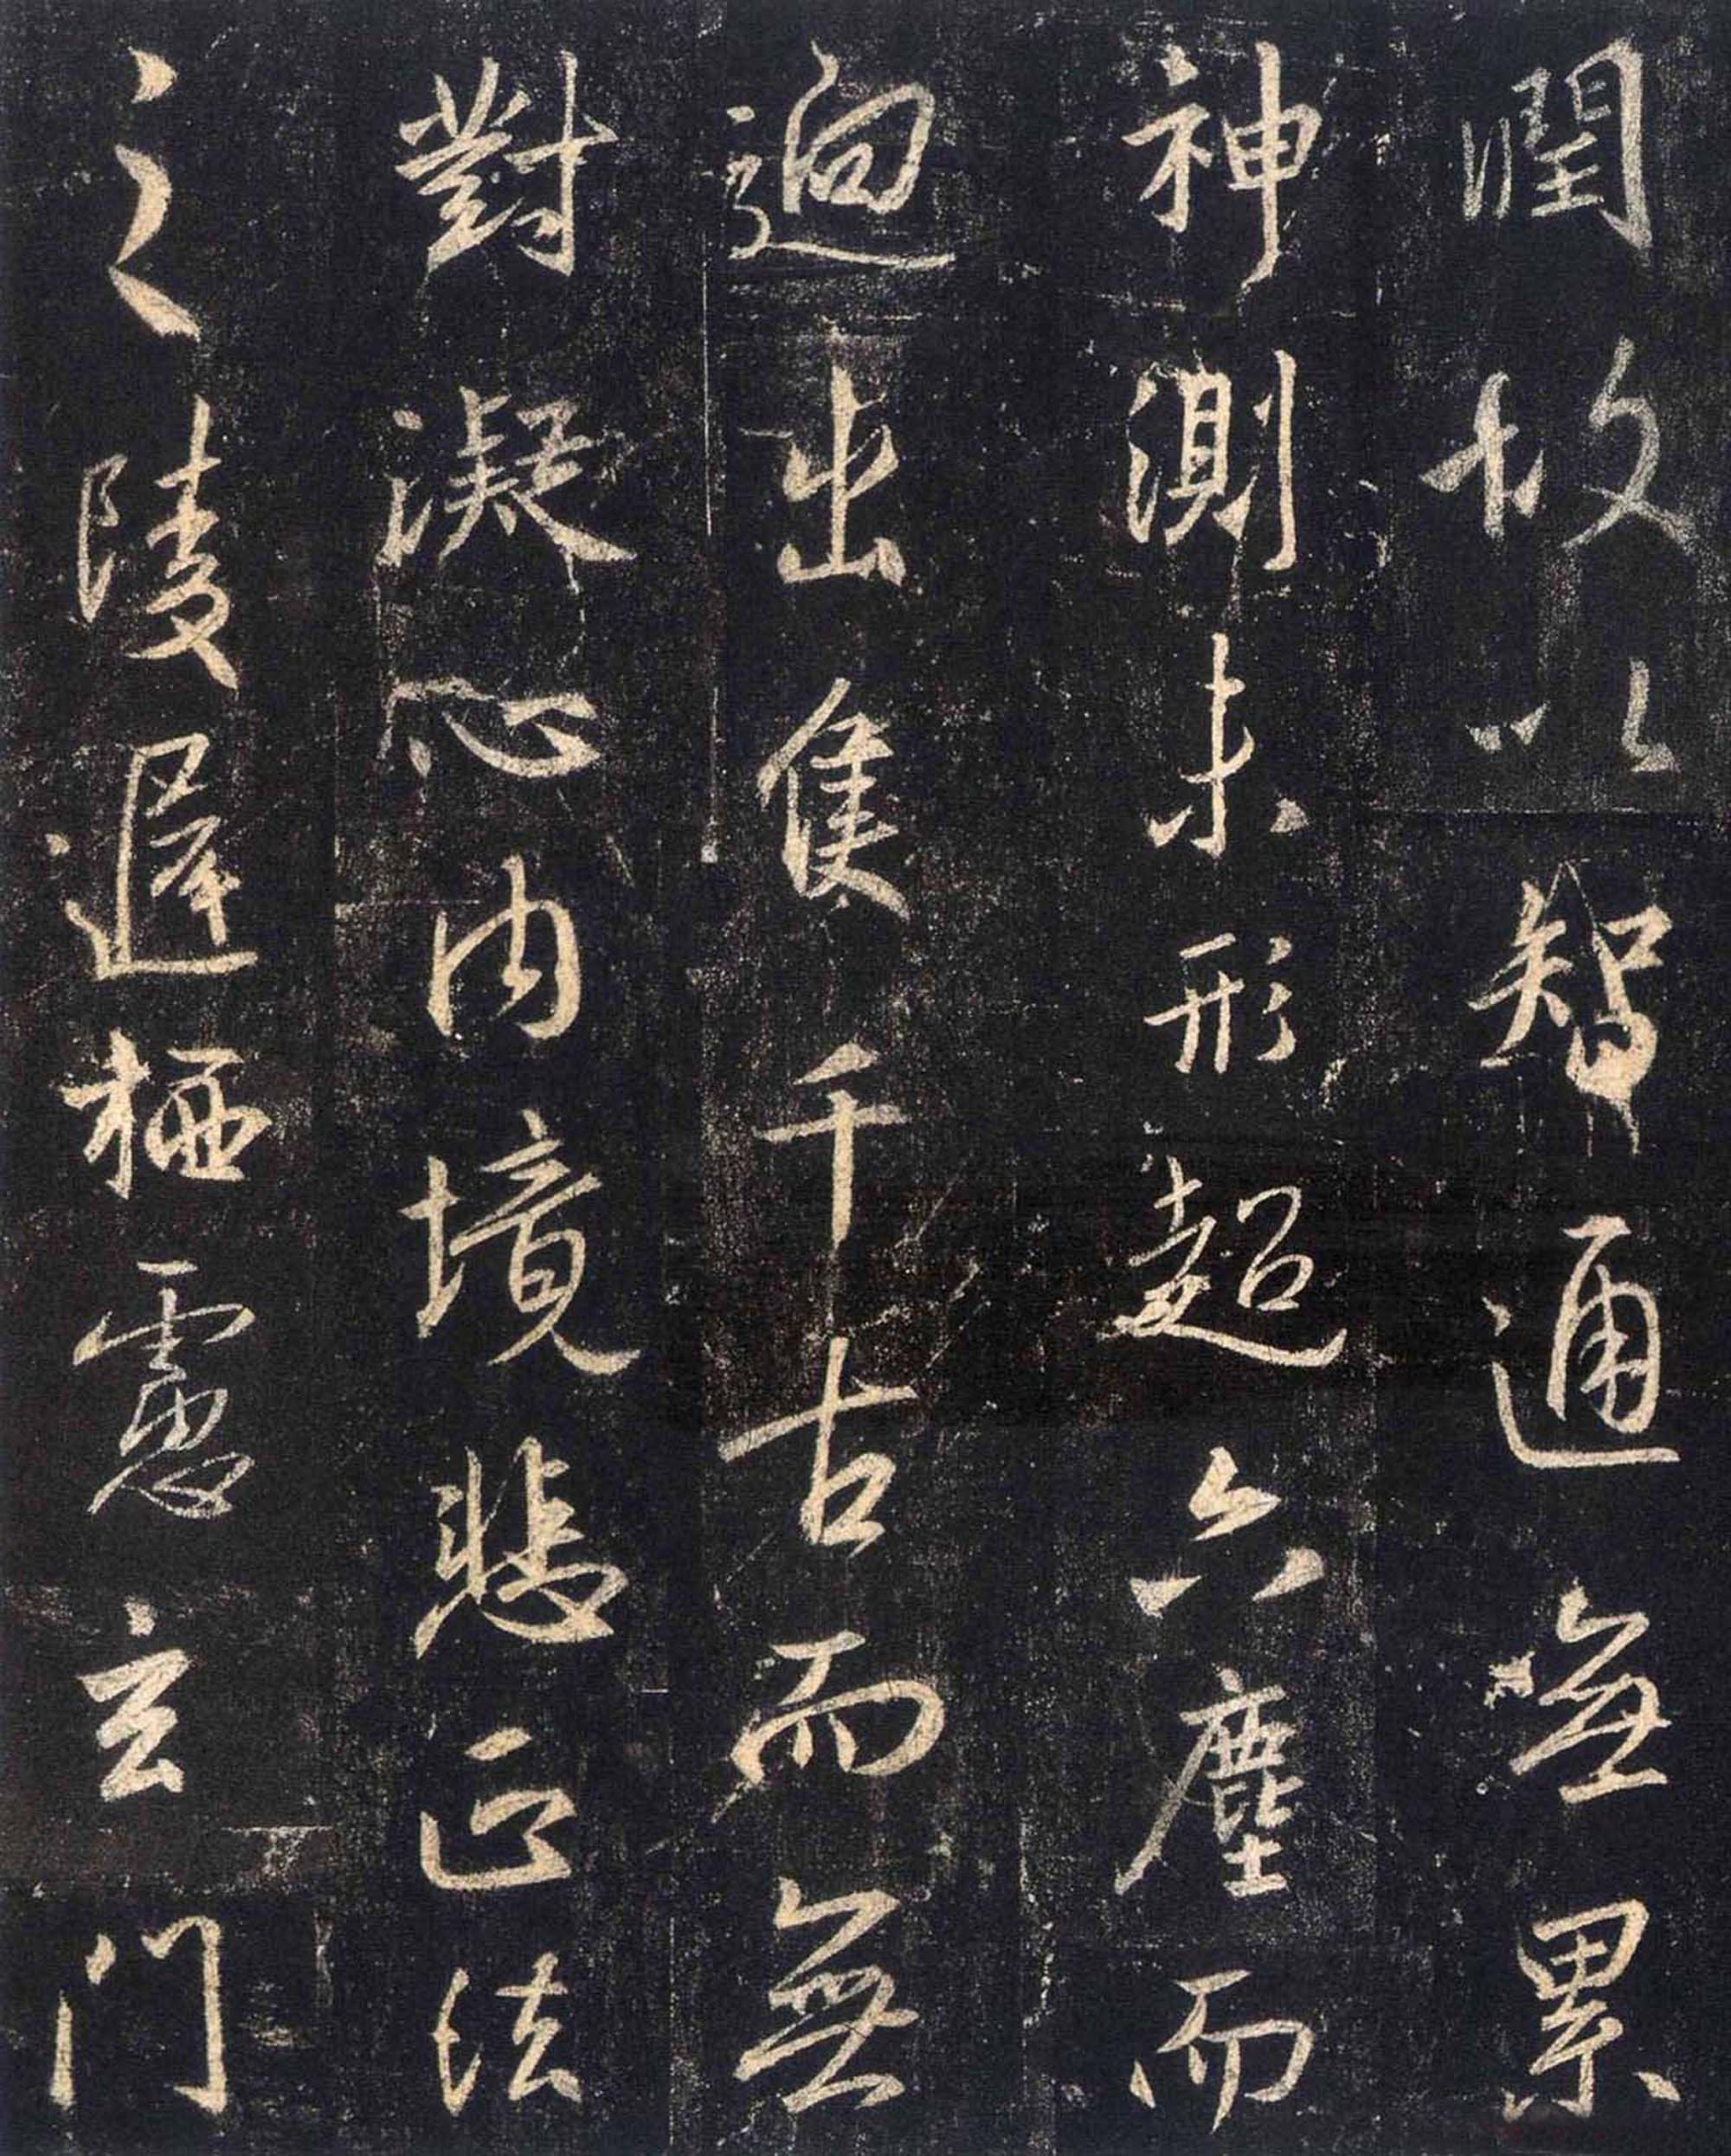 潤故以智通無累
神測未形超六塵而
迥出隻千古而無
對凝心内境悲正法
之陵遲栖慮玄門